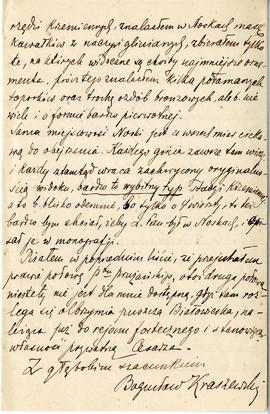 rzędzi krzemiennych, znalazłem w Noskach masę
kawałków z naczyń glinianych, zbierałem tylko
te, na których widoczne są choćby najmniejsze orna-
menta, prócz tego znalazłem kilka połamanych
toporków oraz trochę ozdób bronzowych, ale b. nie
wiele i o formie bardzo pierwotnej.
Sama miejscowość Noski jest w wysokim cieka-
wą do obejrzenia. Każdego gościa zawsze tam wiozę
i każdy stamtąd wraca zachwycony oryginalno-
ścią widoku, bardzo to wybitny typ Stacji Krzemiennej,
a to b. blisko odemnie, bo tylko 3 wiorsty, to też
bardzo bym chciał, żeby Sz. Pan był w Noskach, i opi-
sał je w monografji.
Pisałem w poprzednim liście, że przejechałem
prawie połowę ptu prużańskiego, otóż druga połowa
niestety nie jest dla mnie dostępną, gdyż tam roz-
lega się olbrzymia puszcza Białowieska, na-
leżąca już do rejonu fortecznego i stanowiąca
własność prywatną Cesarza.
Z głębokim szacunkiem
Bogusław Kraszewski